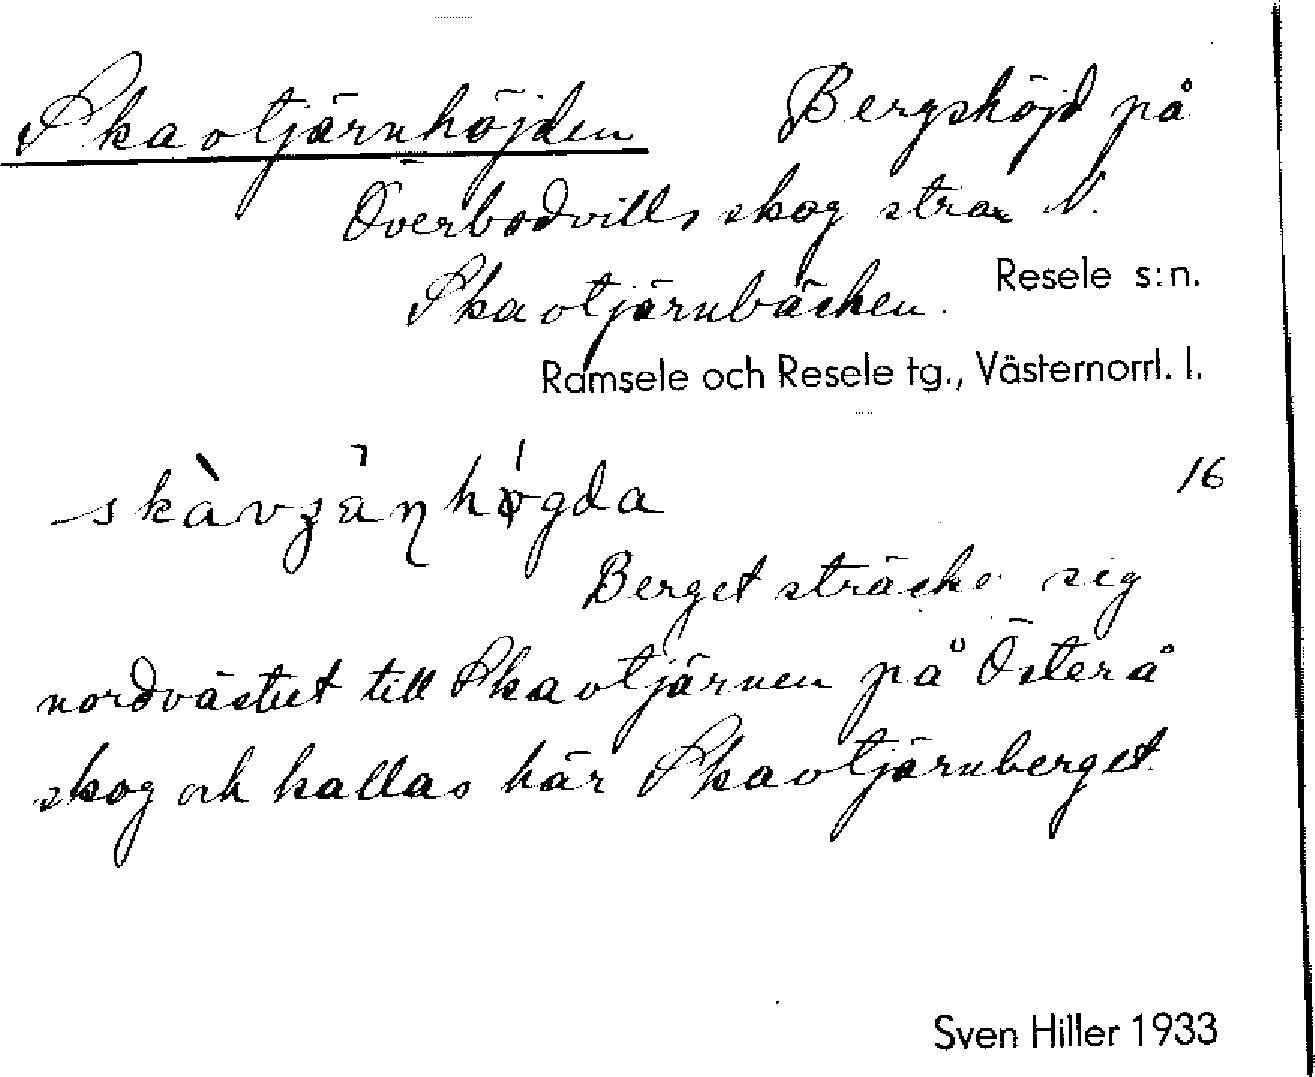 Skavtjärnhöjden Bergshöjd på
Överbodvills skog strax N.
Skavtjärnbäcken. Resele s:n.
Ramsele och Resele tg., Västernorrl. l.
16
Berget sträcker sig
nordvästut till Skavtjärnen på Österå
skog och kallas här Skavtjärnberget
Sven Hiller 1933